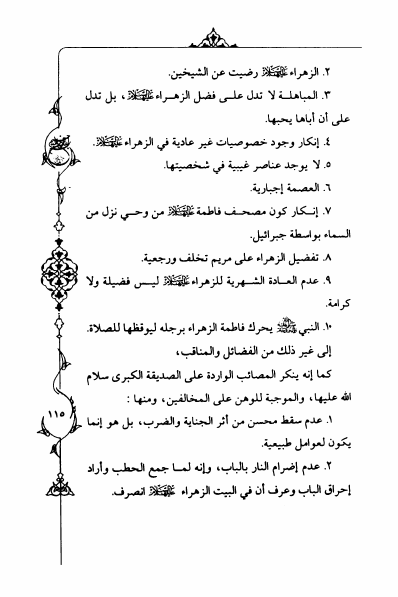 ٢. الزهراء عليها السلام رضيت عن الشيخين.
٣. المباهلة لا تدل على فضل الزهراء عليها السلام، بل تدل
على أن أباها يحبها.
٤. إنكار وجود خصوصيات غير عادية في الزهراء عليها السلام.
٥. لا يوجد عناصر غيبية في شخصيتها.
٦. العصمة إجبارية.
٧. إنكار كون مصحف فاطمة عليها السلام من وحي نزل من
السماء بواسطة جبرائيل.
٨. تفضيل الزهراء على مريم تخلف ورجعية.
٩. عدم العادة الشهرية للزهراء عليها السلام ليس فضيلة ولا
كرامة.
١٠. النبي ﷺ يحرك فاطمة الزهراء برجله ليوقظها للصلاة.
إلى غير ذلك من الفضائل والمناقب،
كما إنه ينكر المصائب الواردة على الصديقة الكبرى سلام
الله عليها، والموجبة للوهن على المخالفين، ومنها :
١. عدم سقط محسن من أثر الجناية والضرب، بل هو إنما
يكون لعوامل طبيعية.
٢. عدم إضرام النار بالباب، وإنه لما جمع الحطب وأراد
إحراق الباب وعرف أن في البيت الزهراء عليها السلام انصرف.
١١٥